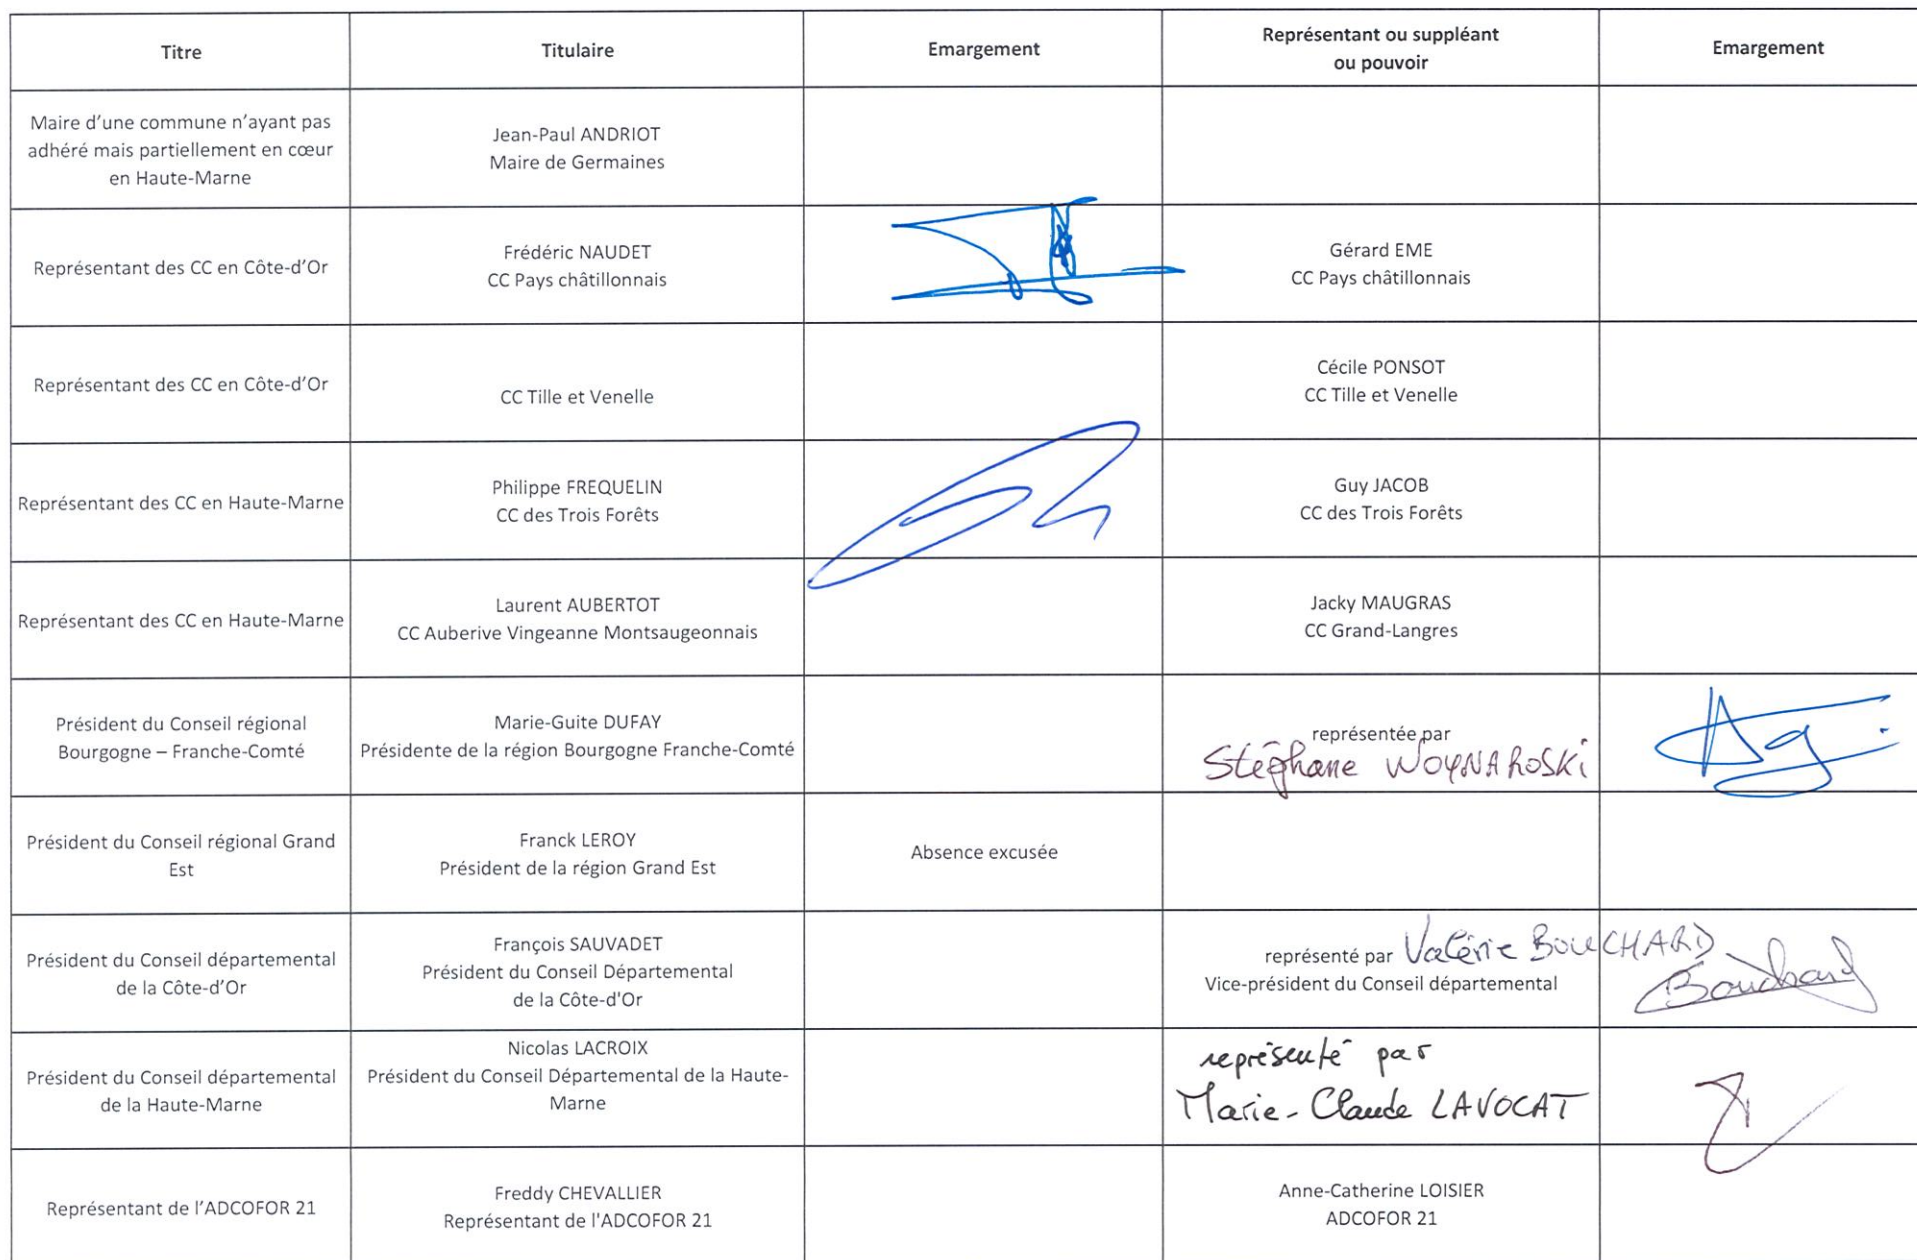 Titre
Titulaire
Emargement
Représentant ou suppléant
ou pouvoir
Emargement
Maire d'une commune n'ayant pas
adhéré mais partiellement en cœur
en Haute-Marne
Jean-Paul ANDRIOT
Maire de Germaines
Représentant des CC en Côte-d'Or
Frédéric NAUDET
CC Pays châtillonnais
Gérard EME
CC Pays châtillonnais
Représentant des CC en Côte-d'Or
CC Tille et Venelle
Cécile PONSOT
CC Tille et Venelle
Représentant des CC en Haute-Marne
Philippe FREQUELIN
CC des Trois Forêts
Guy JACOB
CC des Trois Forêts
Représentant des CC en Haute-Marne
Laurent AUBERTOT
CC Auberive Vingeanne Montsaugeonnais
Jacky MAUGRAS
CC Grand-Langres
Président du Conseil régional
Bourgogne – Franche-Comté
Marie-Guite DUFAY
Présidente de la région Bourgogne Franche-Comté
représentée par
Stéphane WOYNAROSKi
Président du Conseil régional Grand
Est
Franck LEROY
Président de la région Grand Est
Absence excusée
Président du Conseil départemental
de la Côte-d'Or
François SAUVADET
Président du Conseil Départemental
de la Côte-d'Or
représenté par Valérie BOUCHARD
Vice-président du Conseil départemental
Bouchard
Président du Conseil départemental
de la Haute-Marne
Nicolas LACROIX
Président du Conseil Départemental de la Haute-
Marne
représenté par
Marie-Claude LAVOCAT
Représentant de l'ADCOFOR 21
Freddy CHEVALLIER
Représentant de l'ADCOFOR 21
Anne-Catherine LOISIER
ADCOFOR 21